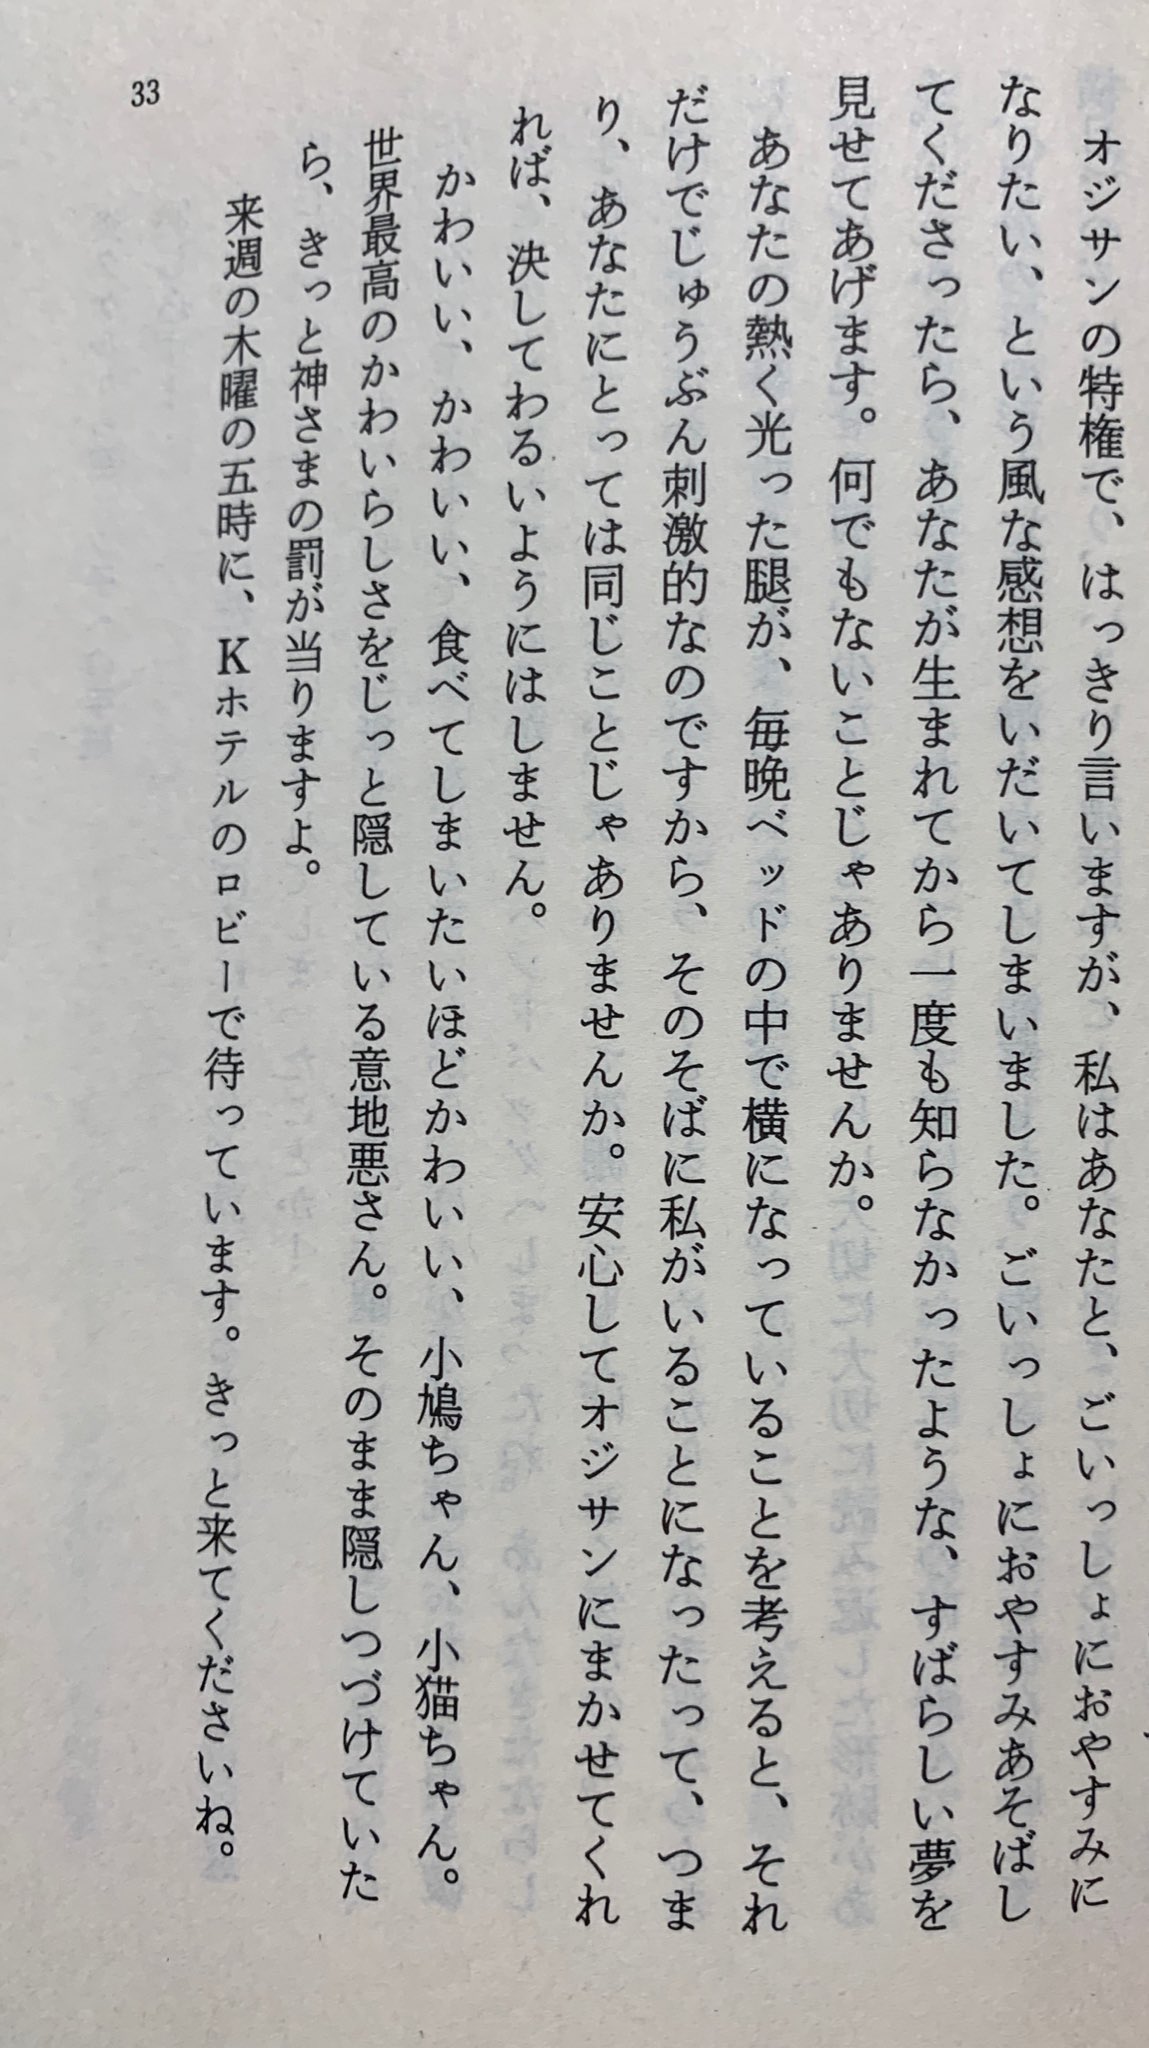 オジサンの特権で、はっきり言いますが、私はあなたと、ごいっしょにおやすみに
なりたい、という風な感想をいだいてしまいました。ごいっしょにおやすみあそばし
てくださったら、あなたが生まれてから一度も知らなかったような、すばらしい夢を
見せてあげます。何でもないことじゃありませんか。
あなたの熱く光った腿が、毎晩ベッドの中で横になっていることを考えると、それ
だけでじゅうぶん刺激的なのですから、そのそばに私がいることになったって、つま
り、あなたにとっては同じことじゃありませんか。安心してオジサンにまかせてくれ
れば、決してわるいようにはしません。
かわいい、かわいい、食べてしまいたいほどかわいい、小鳩ちゃん、小猫ちゃん。
世界最高のかわいらしさをじっと隠している意地悪さん。そのまま隠しつづけていた
ら、きっと神さまの罰が当りますよ。
来週の木曜の五時に、Kホテルのロビーで待っています。きっと来てくださいね。
33